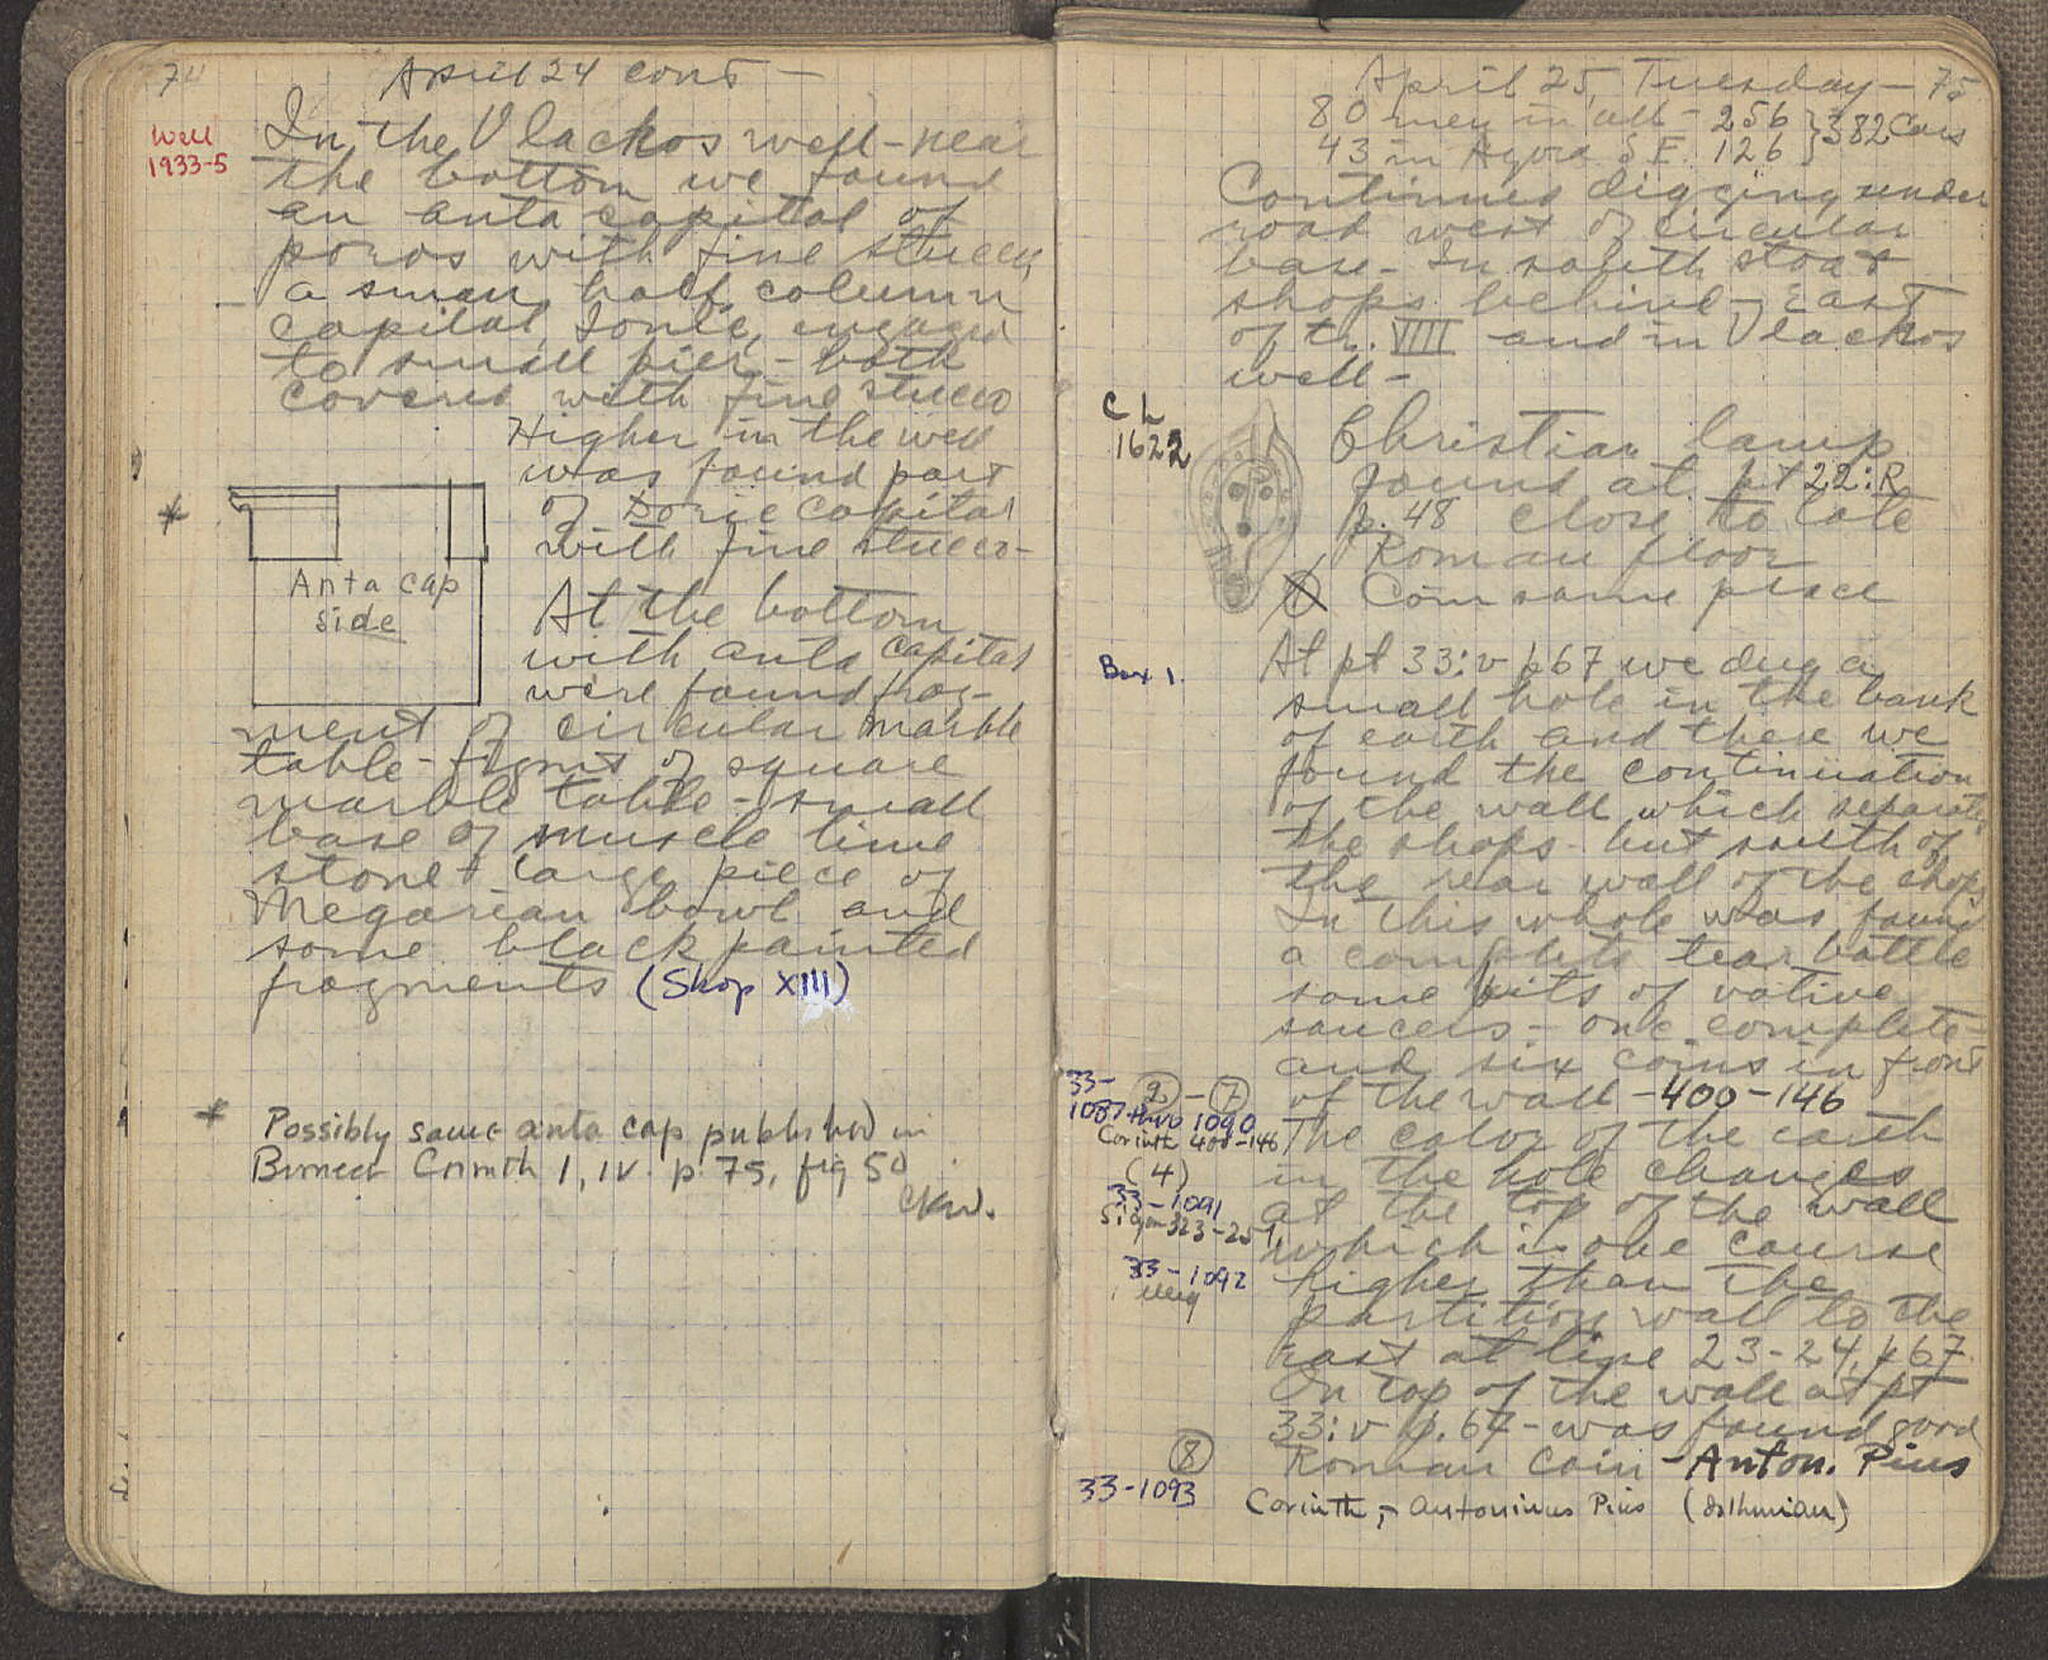 74
April 24 cont —
Well
1933-5
In the Vlachos well - near
the bottom we found
an anta capital of
poros with fine stucco,
a small half column
capital, Ionic, engaged
to small pier - both
covered with fine stucco
Higher in the well
was found part
of Doric capital
with fine stucco -
*
Anta cap
side
At the bottom
with anta capital
were found frag-
ment of circular marble
table - frgmt of square
marble table - small
base of muscle lime
stone + large piece of
Megarian bowl and
some black painted
fragments (Shop XIII)
* Possibly same anta cap published in
Broneer Corinth 1, IV. p. 75, fig 50
CKW.
April 25, Tuesday — 75
80 men in all - 256 } 382 Cars
43 in Agora S.E. 126
Continued digging under
road west of circular
base - In south stoa +
shops behind - East
of tr. VIIII and in Vlachos
well -
CL
1622
Christian lamp
found at pt 22:R
p. 48 close to late
Roman floor
1 Coin same place
Box 1.
At pt 33:v p67 we dug a
small hole in the bank
of earth and there we
found the continuation
of the wall which separates
the shops - but south of
the rear wall of the shops
In this whole was found
a complete tear bottle
some bits of votive
saucers - one complete -
and six coins in front
of the wall - 400-146
33- 2 - 7
1087 thro 1090
Corinth 400-146
(4)
33-1091
Sigon 323-251,
33-1092
1 illeg
The color of the earth
in the hole changes
at the top of the wall
which is one course
higher than the
partition wall to the
east at line 23-24, p67
On top of the wall at pt
33:v p. 67 - was found good
8 Roman Coin - Anton. Pius
33-1093 Corinth, - Antoninus Pius (Isthmian)